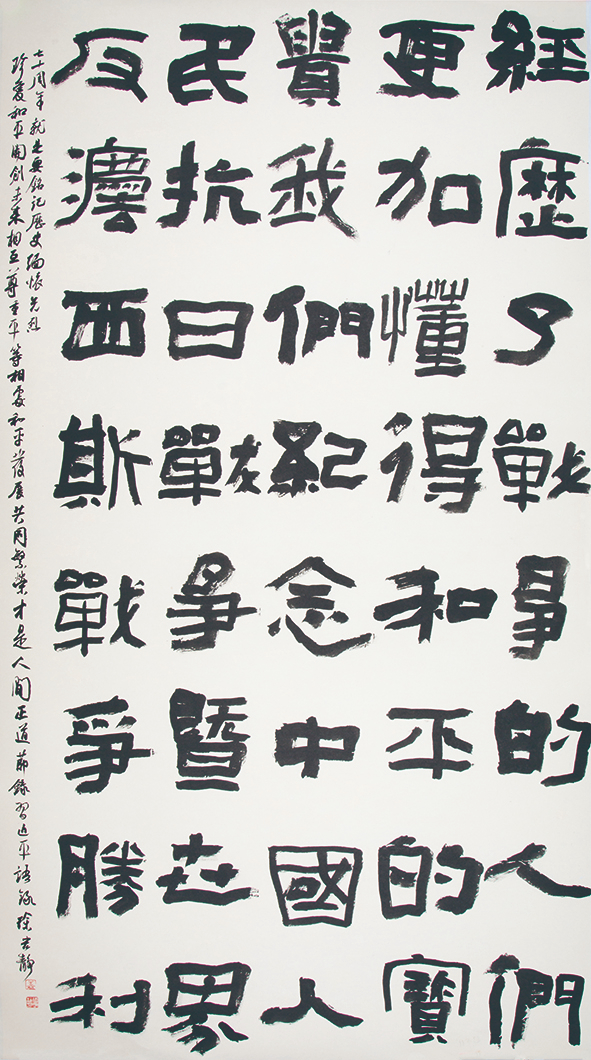 經歷了戰爭的人們
更加懂得和平的寶
貴我們紀念中國人
民抗日戰爭暨世界
反灋西斯戰爭勝利
七十周年就是要銘記歷史緬懷先烈
珍愛和平開創未來相互尊重平等相處和平發展共同繁榮才是人間正道節錄習近平語錄